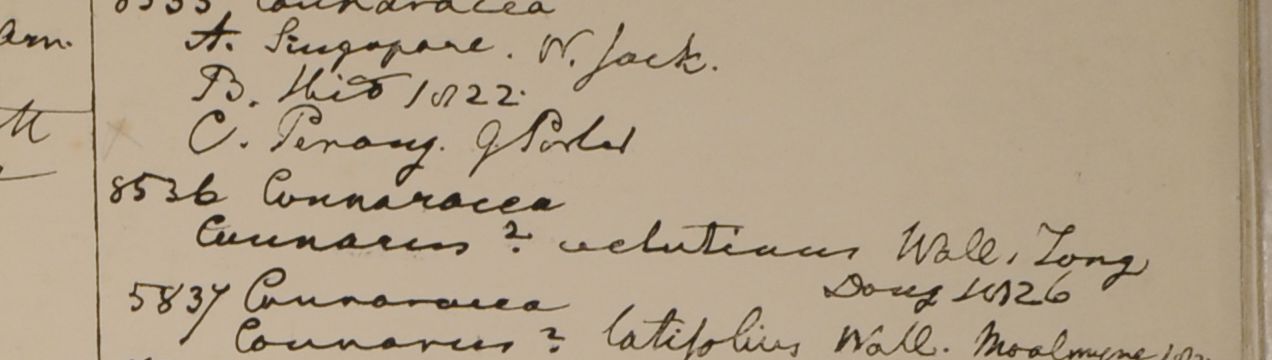 8535 Connaracea
Arn.
A. Singapore. W. Jack.
B. Hid 1822
C. Penang. G Porter
8536 Connaracea
Connarus ? velutinus Wall. Tong
Dong 1826
5837 Connaracea
Connarus ? latifolius Wall. Moalmyne